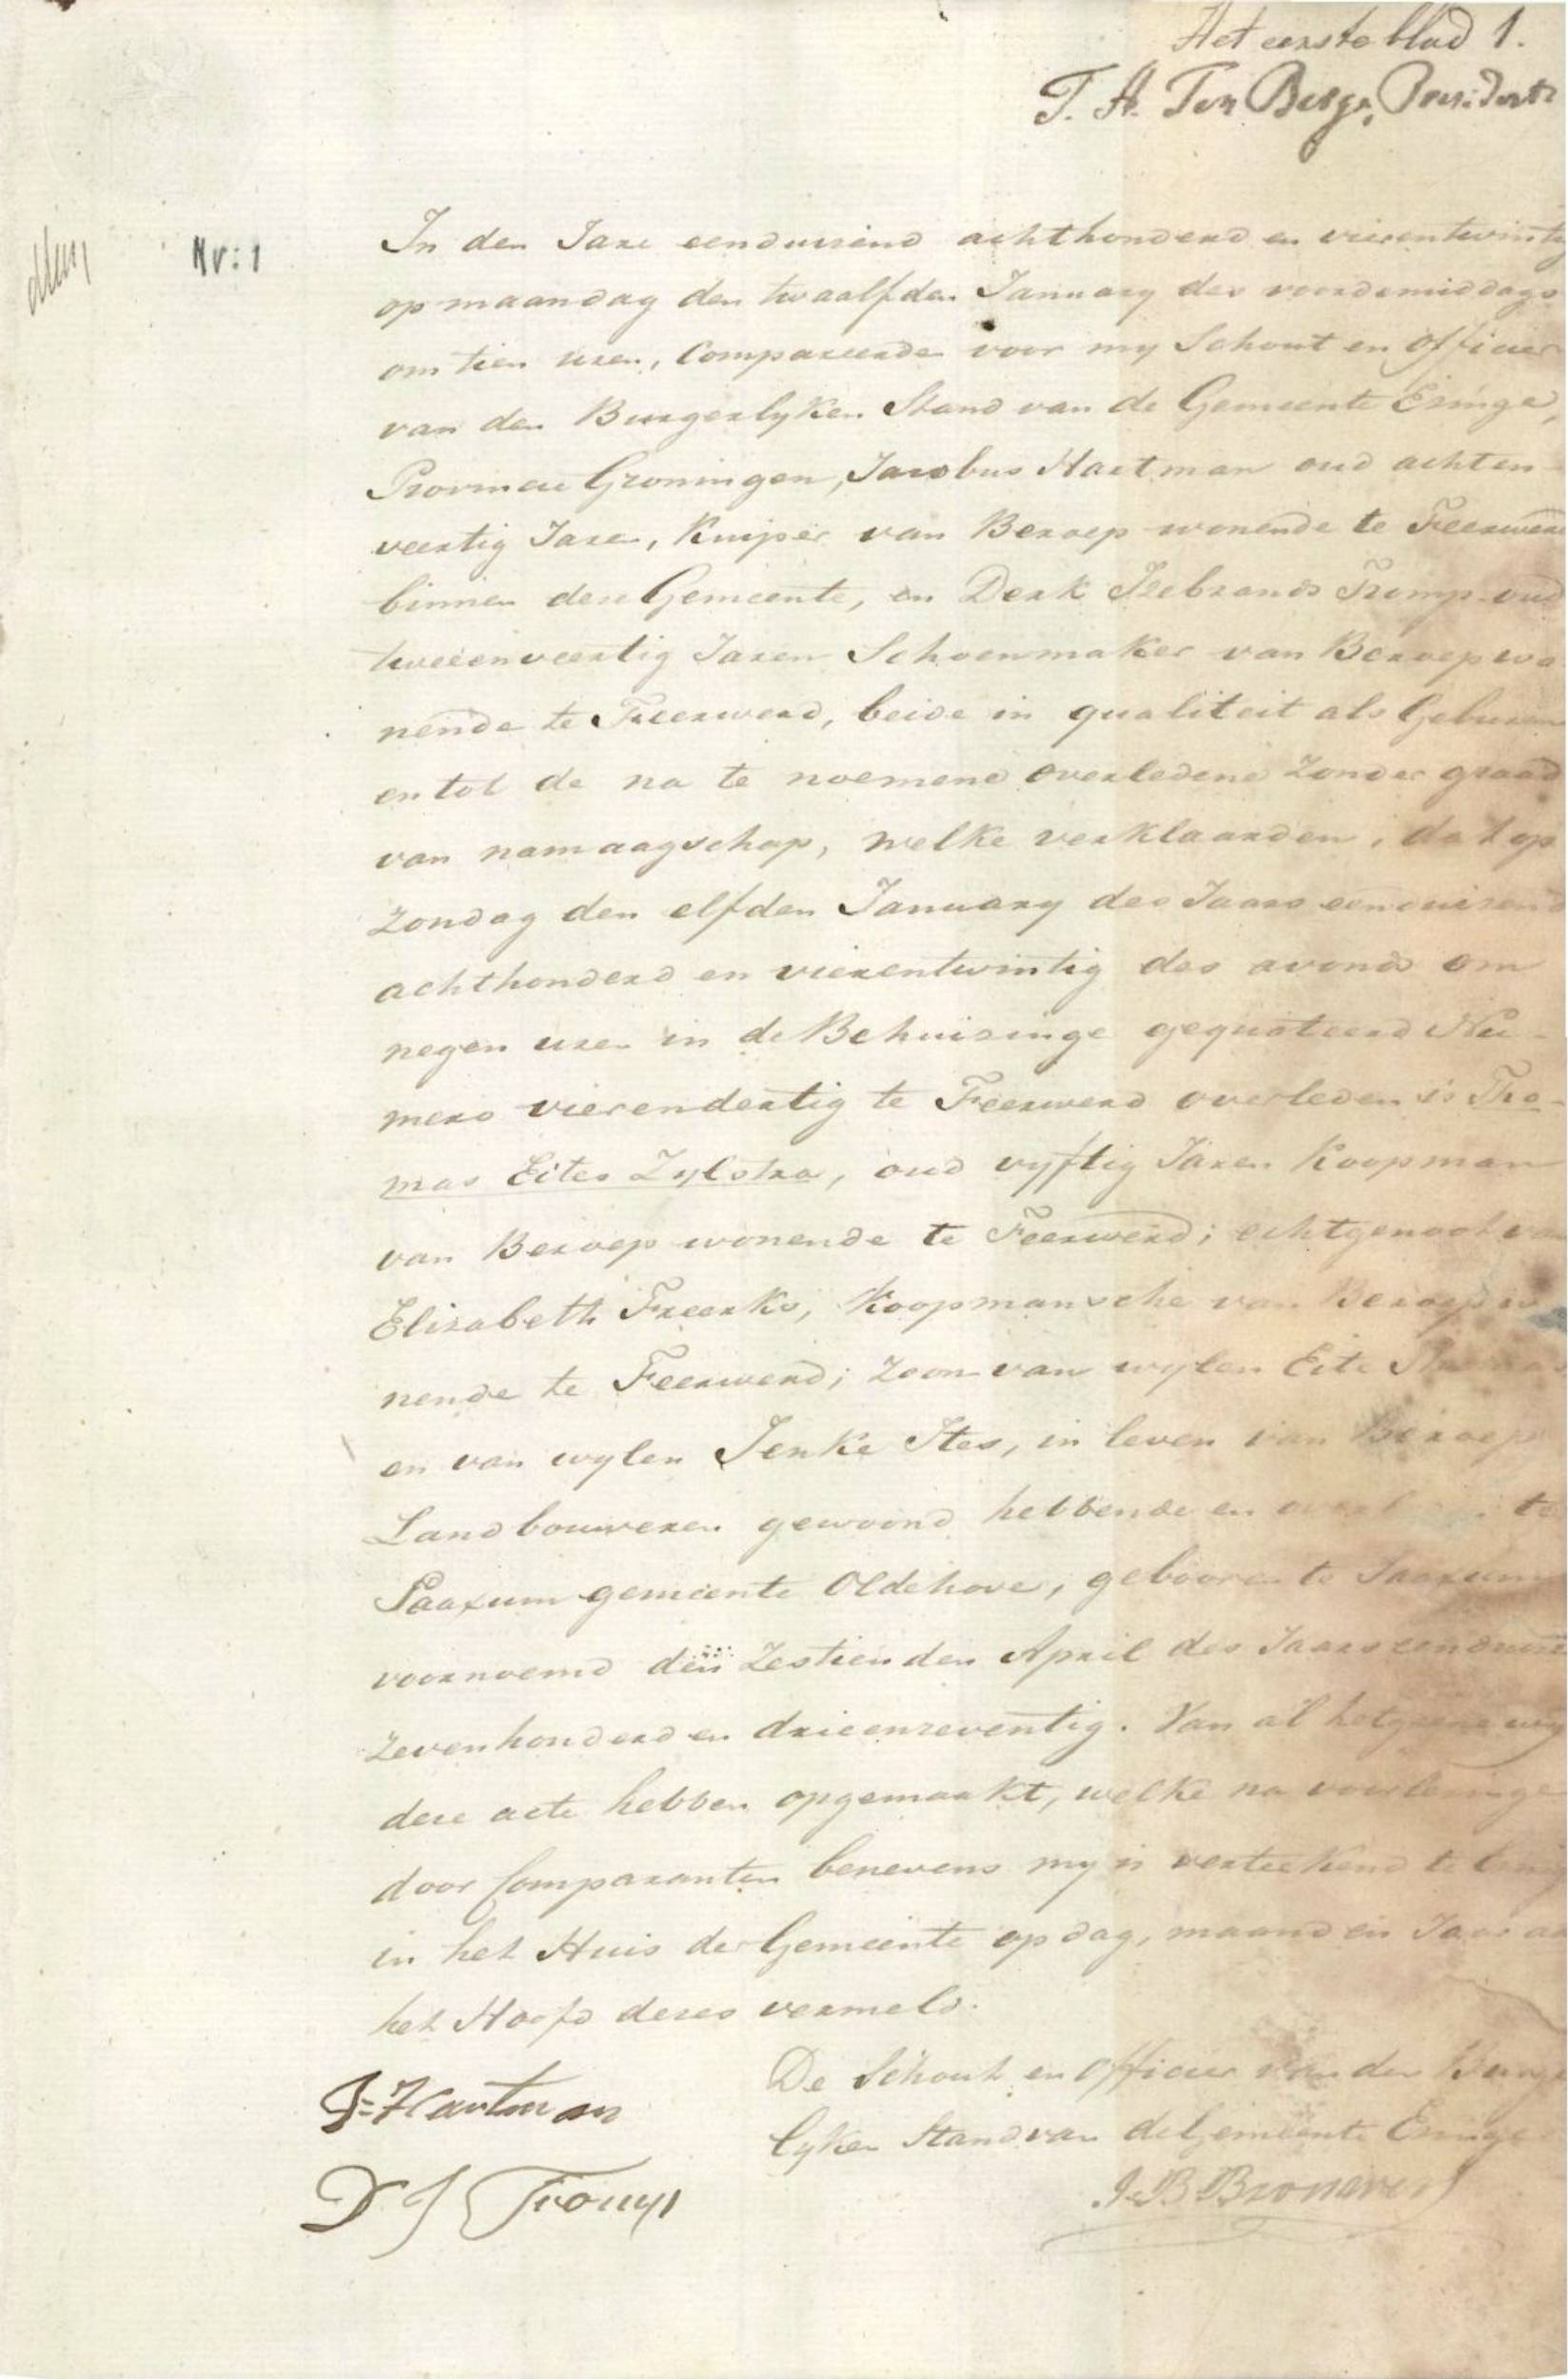 Het eerste blad 1.
T. H. Ten Berge, President
Nr: 1
In den Jare eenduisend achthonderd en vierentwintig
op maandag den twaalfden January des voordemiddags
om tien uren, Compareerde voor my Schout en Officier
van den Burgerlyken Stand van de Gemeente Ezinge,
Provincie Groningen, Jacobus Hartman oud achten-
veertig Jaren, Kuiper van Beroep wonende te Feerwerd
binnen dese Gemeente, en Derk IJzebrands Tromp oud
tweeenveertig Jaren Schoenmaker van Beroep wo
nende te Feerwerd, beide in qualiteit als Geburen
en tot de na te noemene overledene zonder graad
van namaagschap, welke verklaarden, dat op
Zondag den elfden January des Jaars eenduisend
achthonderd en vierentwintig des avonds om
negen uren in de Behuisinge gequoteerd Nu-
mero vierendertig te Feerwerd overleden is Tho-
mas Eites Zylstra, oud vyftig Jaren Koopman
van Beroep wonende te Feerwerd; echtgenoot va
Elizabeth Freerks, Koopmansche van Beroep wo
nende te Feerwerd; Zoon van wylen Eite
en van wylen Jenke Ites, in leven van Beroep
Landbouweren gewoond hebbende en te
Saaxum gemeente Oldehove, gebooren te Saaxum
voornoemd den Zestienden April des Jaars eenduisend
Zevenhonderd en drieenzeventig. Van al hetgeene wy
dese acte hebben opgemaakt, welke na voorlesinge
door Comparanten benevens my is verteekend te
in het Huis der Gemeente op dag, maand en Jaar aa
het Hoofd deses vermeld.
De Schout en Officier van den Burger
lyken Stand van de Gemeente Ezinge
J. Hartman
D J Tromp